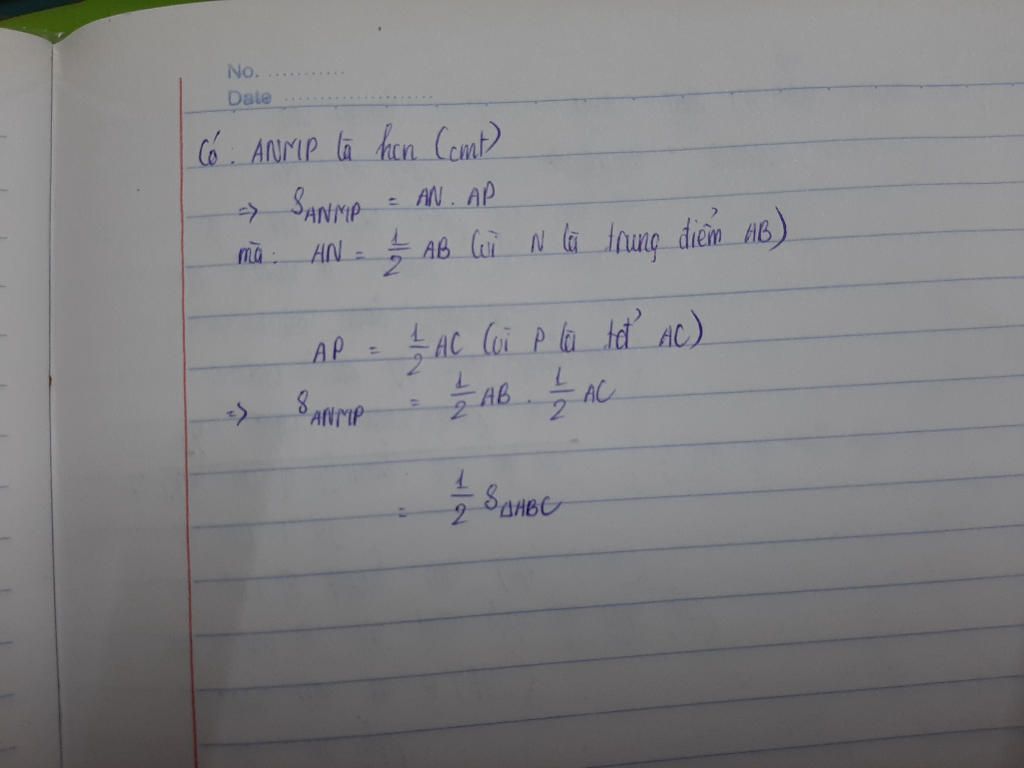 No. ...........
Date ......................
Có : ANMP là hcn (cmt)
=> SANMP = AN . AP
mà : AN = 1/2 AB (vì N là trung điểm AB)
AP = 1/2 AC (vì P là tđ AC)
=> SANMP = 1/2 AB . 1/2 AC
= 1/2 SΔABC